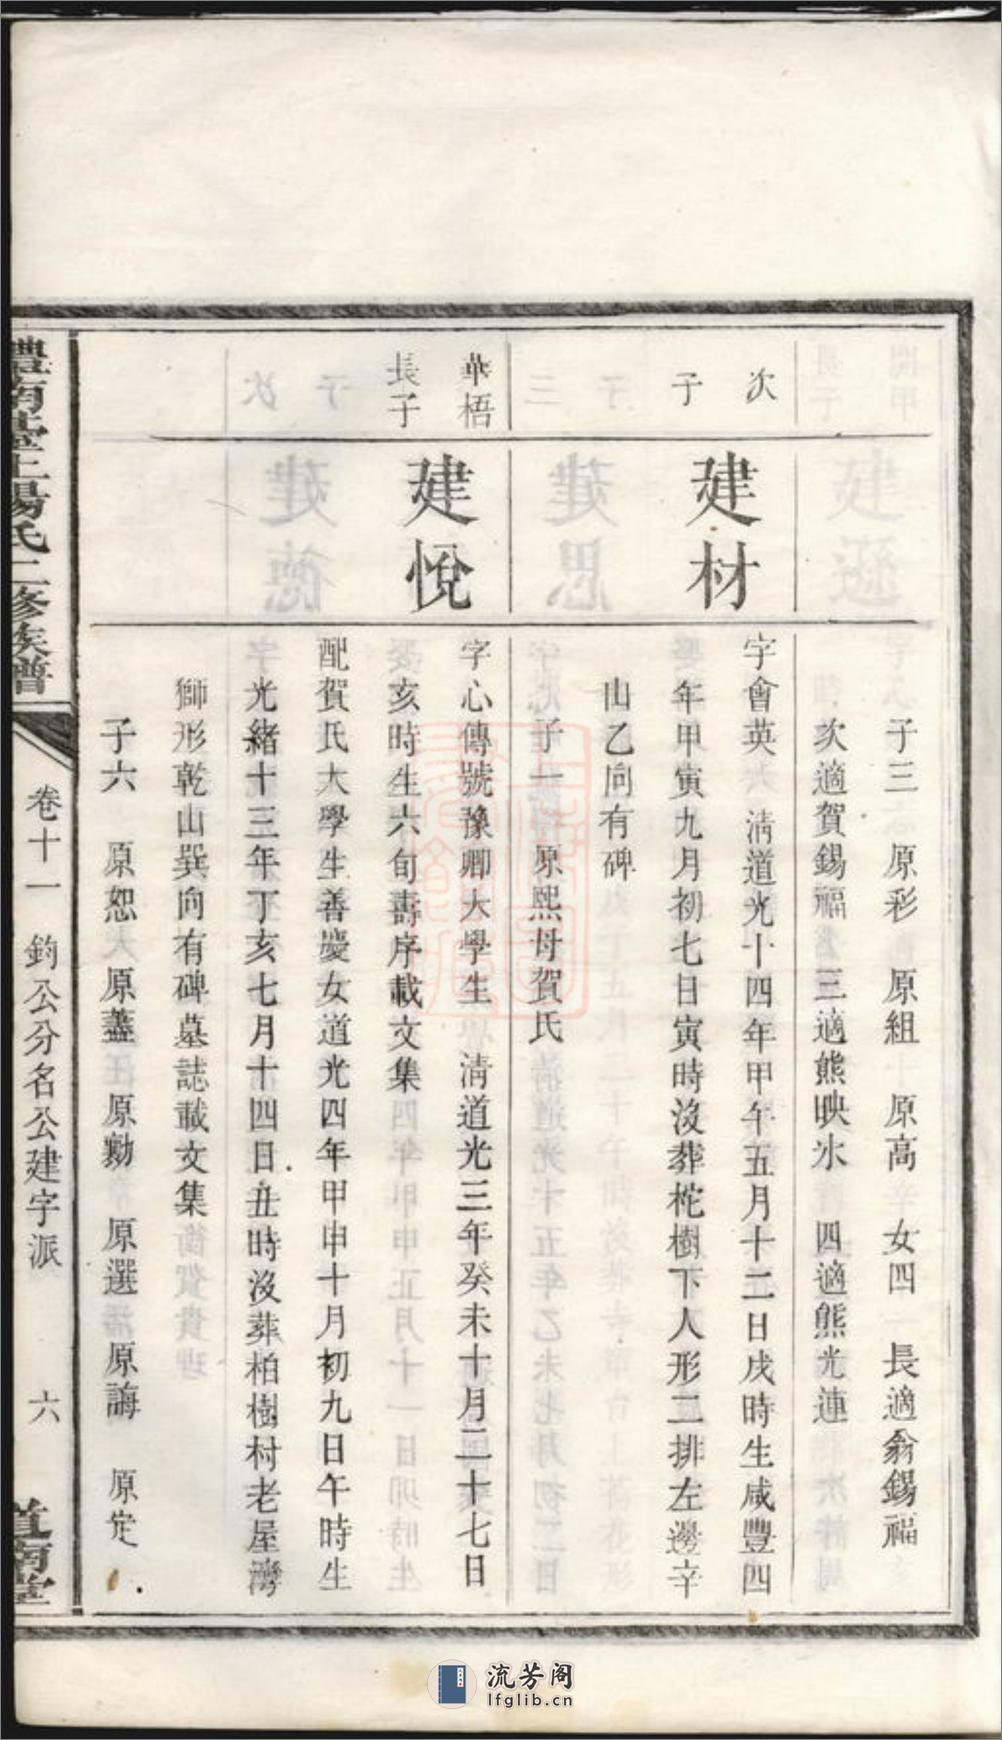 子三 原彩 原組 原高 女四 長適翁錫福
次適賀錫福 三適熊映氷 四適熊光連
次
子
建材
字會英 清道光十四年甲午五月十二日戌時生咸豐四
年甲寅九月初七日寅時沒葬柁樹下人形二排左邊辛
山乙向有碑
子一 原熙母賀氏
華梧
長子
建悅
字心傳號豫卿大學生 清道光三年癸未十月二十七日
亥時生六旬壽序載文集
配賀氏大學生善慶女道光四年甲申十月初九日午時生
光緒十三年丁亥七月十四日丑時沒葬柏樹村老屋灣
獅形乾山巽向有碑墓誌載文集
子六 原恕 原藎 原勷 原選 原誨 原定
南 上楊氏二修族譜
卷十一 鈞公分名公建字派 六
道南堂
流芳阁
lfglib.cn